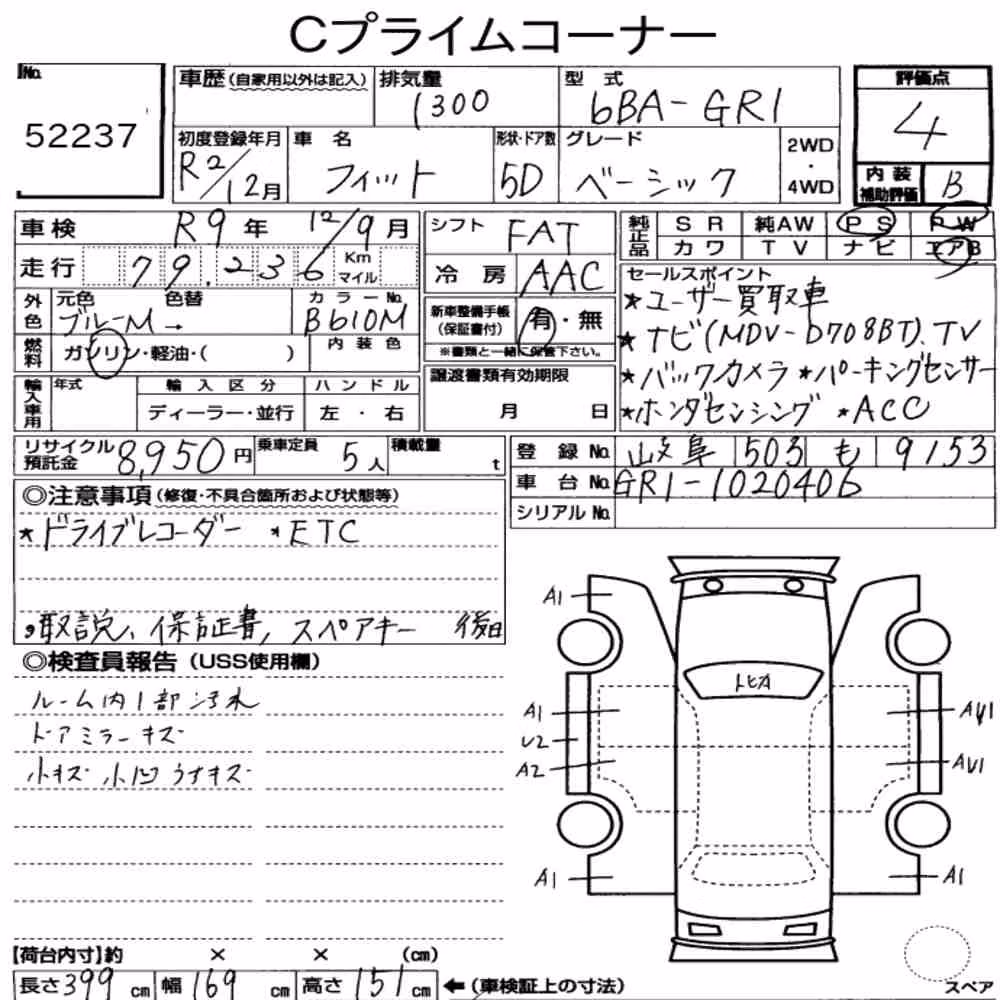 Cプライムコーナー
No.
52237
車歴(自家用以外は記入)
排気量
1300
型式
6BA-GR1
評価点
4
初度登録年月
R2/12月
車名
フィット
形状・ドア数
5D
グレード
ベーシック
2WD
・
4WD
内装
補助評価
B
車検 R9年 12/9月
走行 79,236 Km
マイル
シフト FAT
冷房 AAC
純正品
SR 純AW PS PW
カワ TV ナビ エアB
外色
元色 色替
ブルーM →
カラーNo.
B610M
燃料
ガソリン・軽油・( )
内装色
新車整備手帳
(保証書付)
有・無
※書類と一緒に保管下さい。
セールスポイント
★ユーザー買取車
★ナビ(MDV-D708BT)、TV
★バックカメラ ★パーキングセンサー
★ホンダセンシング ★ACC
輸入車用
年式
輸入区分
ディーラー・並行
ハンドル
左・右
譲渡書類有効期限
月 日
リサイクル
預託金
8,950円
乗車定員
5人
積載量
t
登録No. 岐阜 503 も 9153
車台No. GR1-1020406
シリアルNo.
◎注意事項(修復・不具合箇所および状態等)
★ドライブレコーダー ★ETC
取説、保証書、スペアキー 後日
◎検査員報告(USS使用欄)
ルーム内1部汚れ
ドアミラーキズ
小キズ 小凹 うすキズ
A1
トヒA
A1
U2
A2
AU1
AU1
A1
A1
【荷台内寸】約 × × (cm)
長さ399cm 幅169cm 高さ151cm ←(車検証上の寸法)
スペア